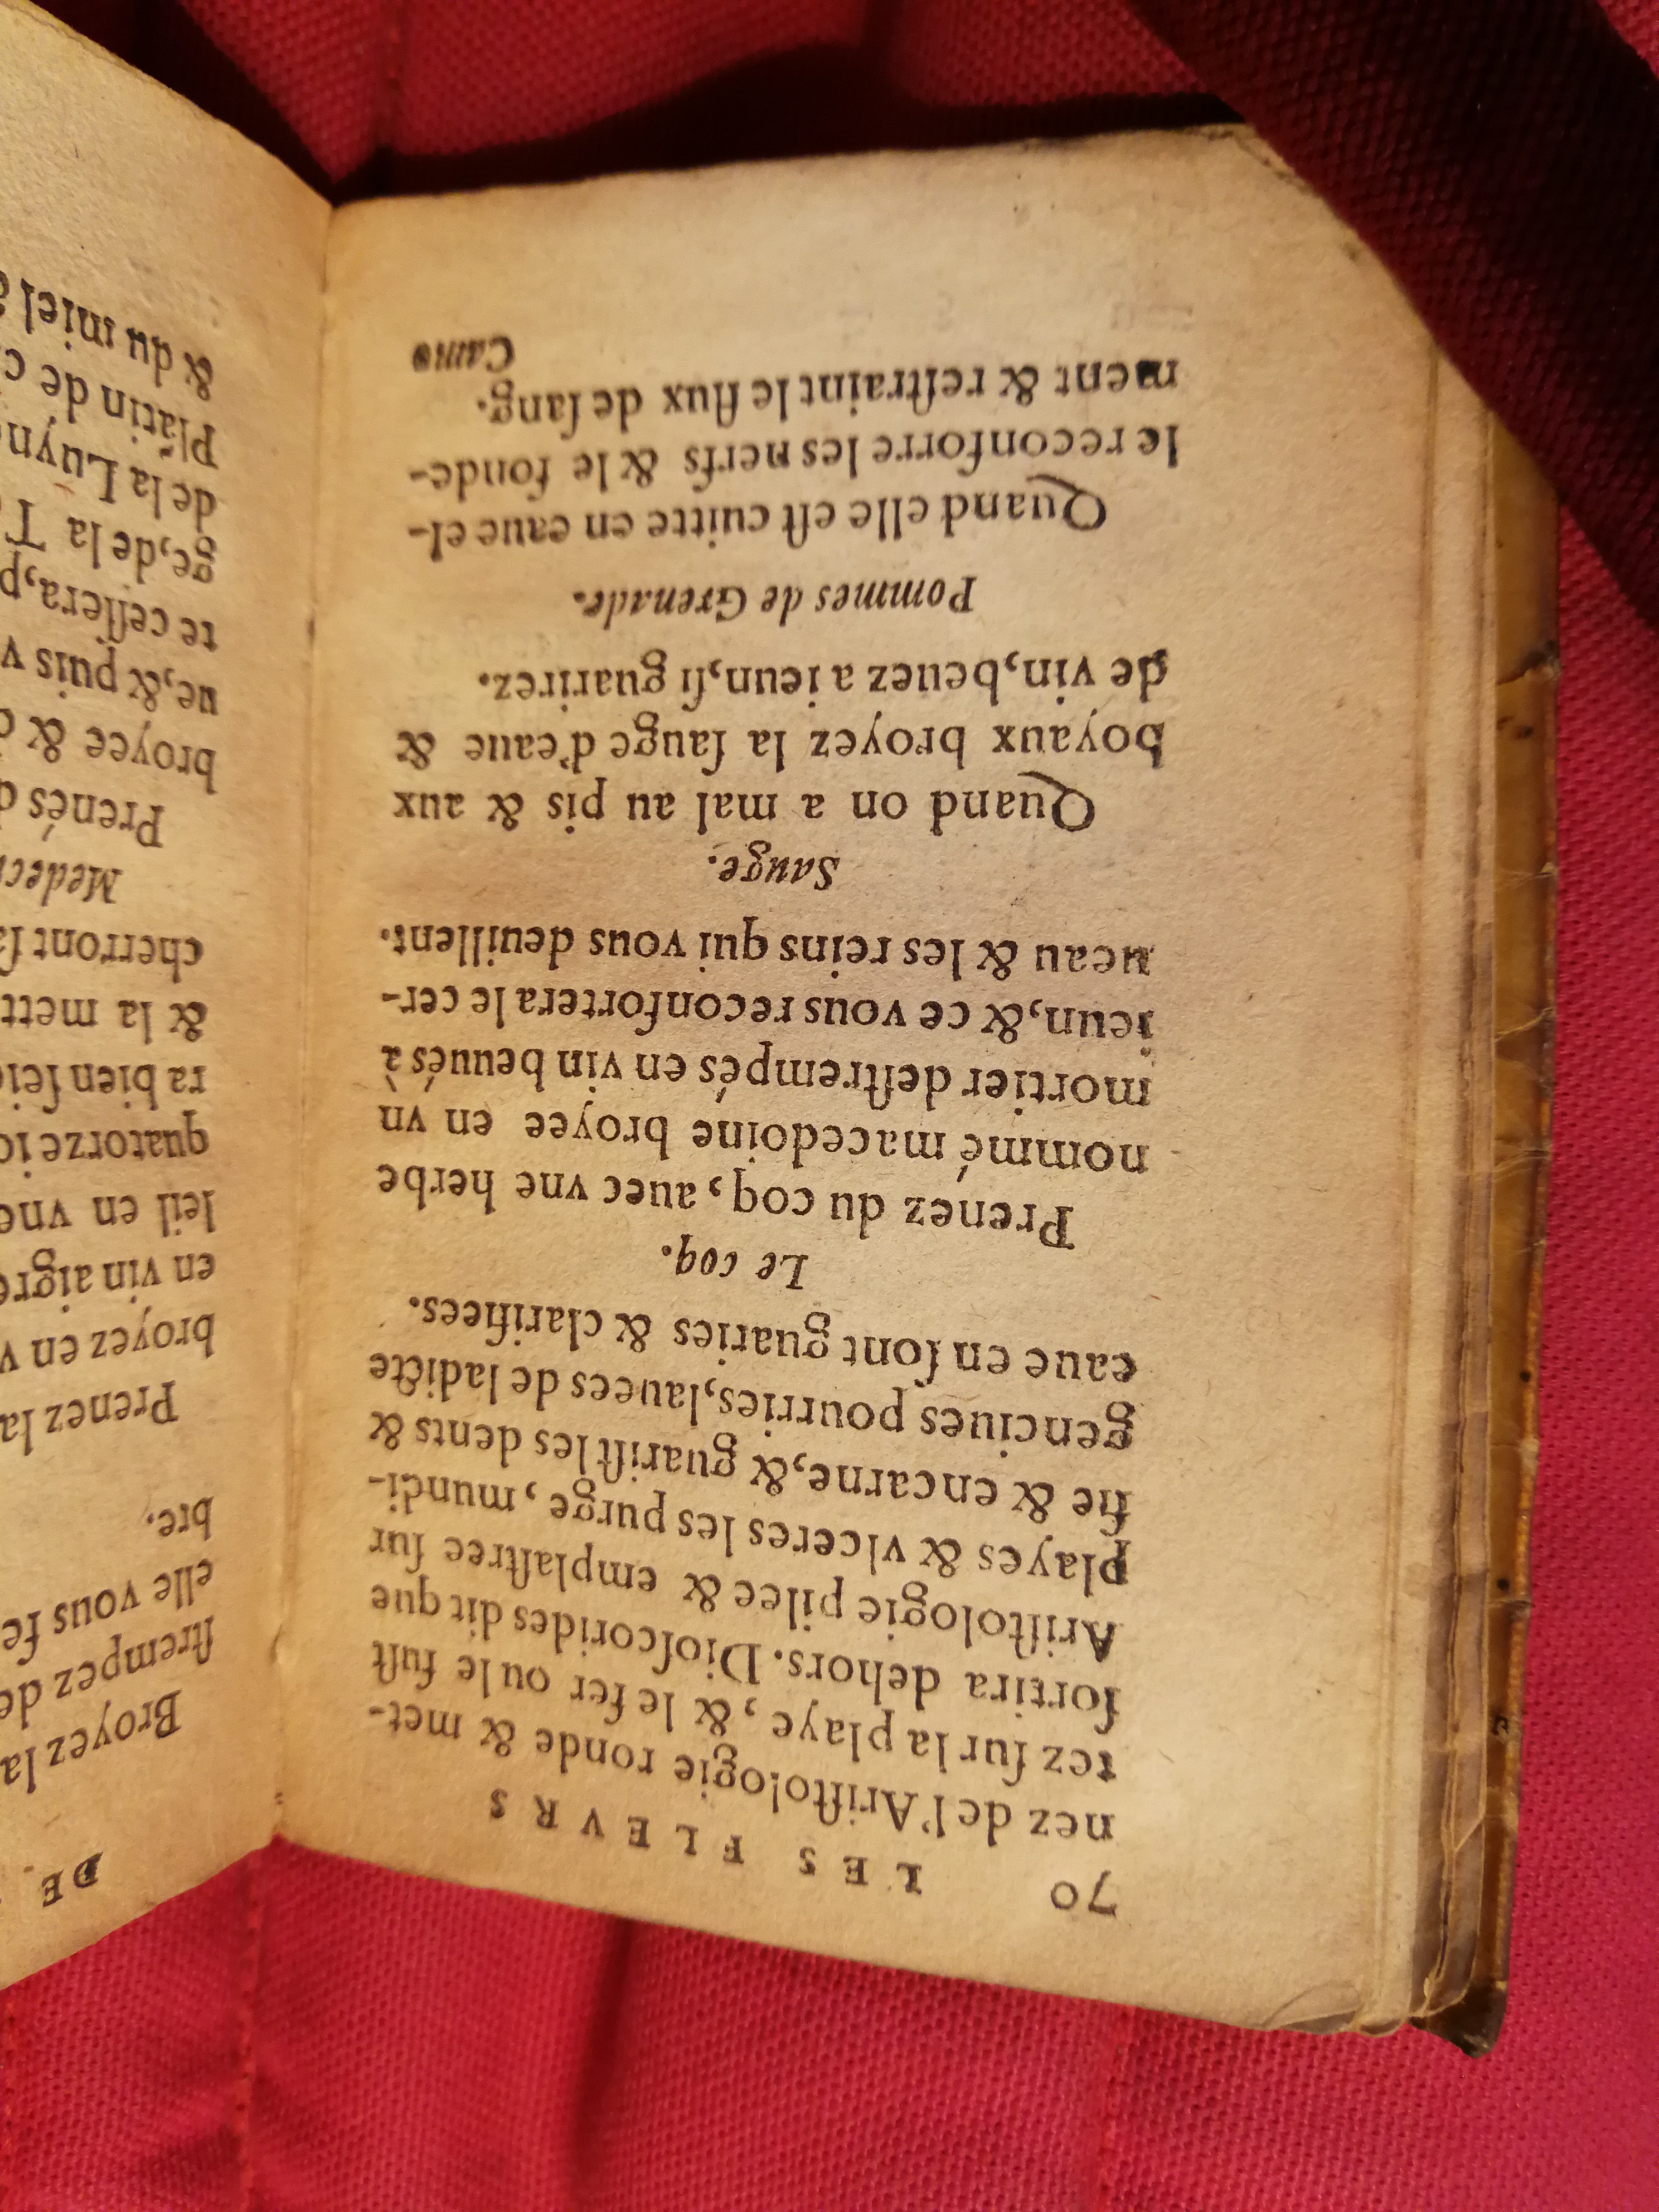 70 LES FLEVRS
nez de l'Ariſtologie ronde & met-
tez ſur la playe, & le fer ou le fuſt
ſortira dehors. Dioſcorides dit que
Ariſtologie pilee & emplaſtree ſur
playes & vlceres les purge, mundi-
fie & encarne, & guariſt les dents &
genciues pourries, lauees de ladicte
eaue en ſont guaries & clarifiees.
Le coq.
Prenez du coq, auec vne herbe
nommé macedoine broyee en vn
mortier deſtrempés en vin beuués à
ieun, & ce vous reconfortera le cer-
ueau & les reins qui vous deuillent.
Sauge.
Quand on a mal au pis & aux
boyaux broyez la ſauge d'eaue &
de vin, beuez a ieun, ſi guarirez.
Pommes de Grenade.
Quand elle eſt cuitte en eaue el-
le reconforre les nerfs & le fonde-
ment & reſtraint le flux de ſang.
Camo
DE
Broyez la
ſtrempez de
elle vous fe
bre.
Prenez la
broyez en v
en vin aigre
leil en vne
quatorze io
ra bien ſei
& la mett
cherront ſa
Medeci
Prenés d
broyee & d
ue, & puis v
te ceſſera, p
ge, de la T
de la Luyn
Platin de c
& du miel